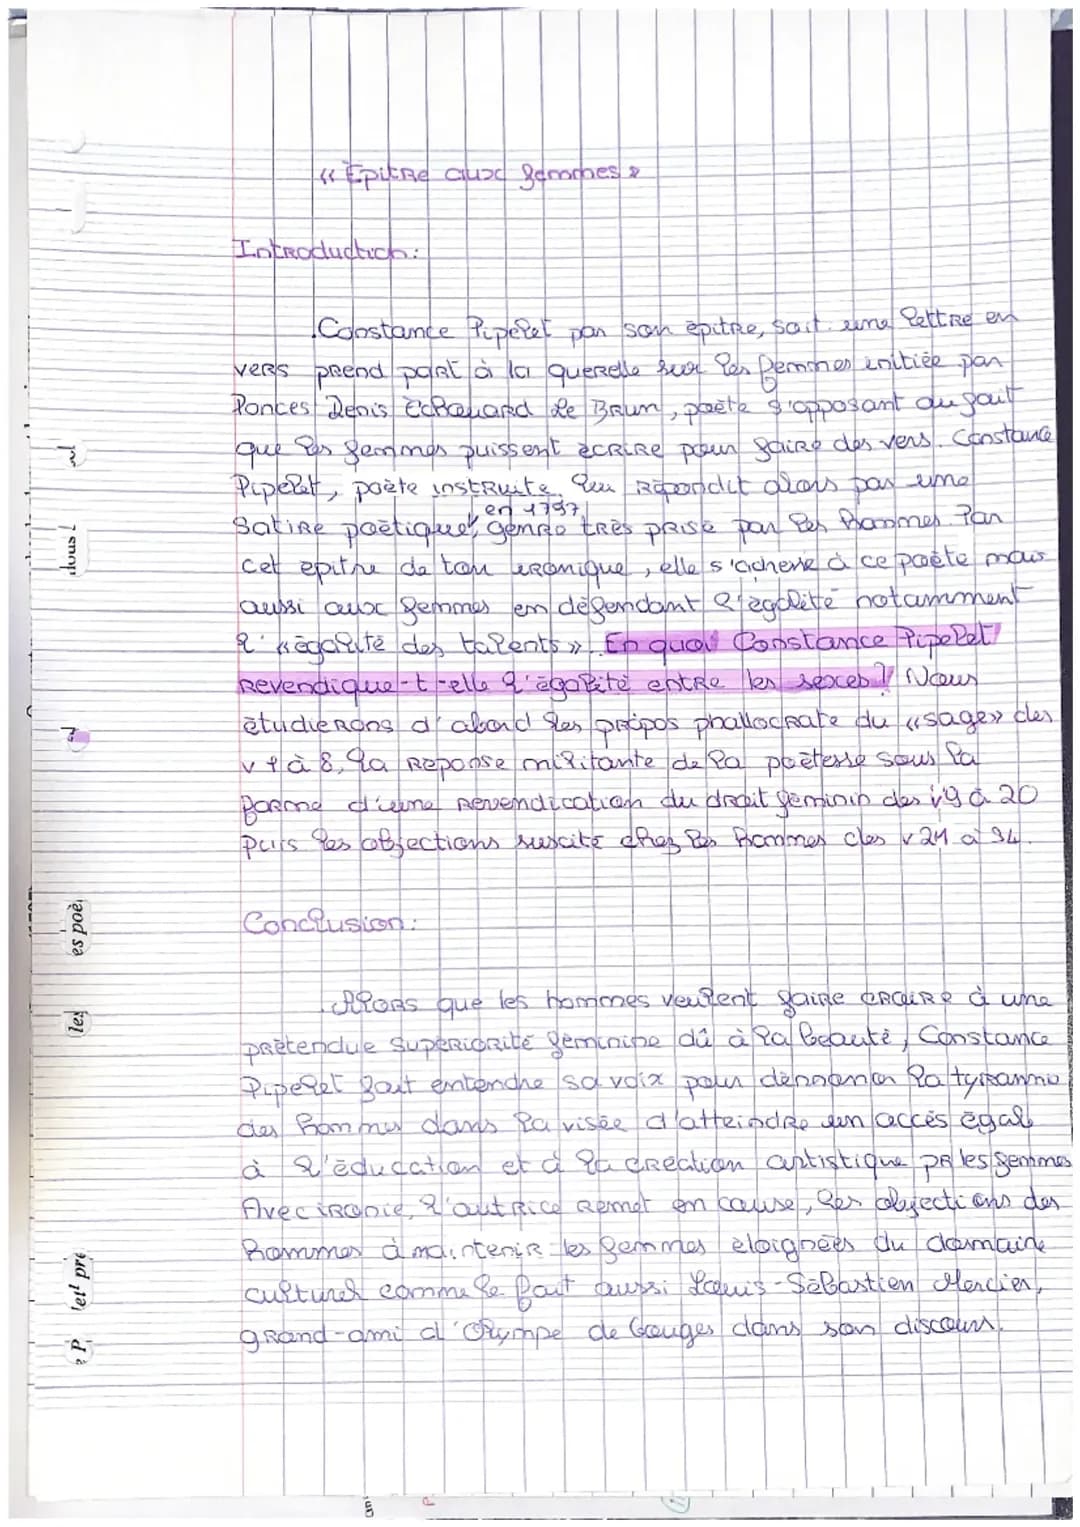 « Epitre aux femmes »
Introduction:
Constance Pipelet par son épitre, soit une lettre en
vers prend part à la querelle sur les femmes initiée par
Ponces Denis Echouard Le Brun, poète s'opposant au fait
que les femmes puissent écrire pour faire des vers. Constance
Pipelet, poète instruite, lui répondit alors par une
satire poétique en 1797, genre très prisé par les hommes. Par
cet epitre de ton ironique, elle s'adresse à ce poète mais
aussi aux femmes en défendant l'égalité notamment
l' «égalité des talents». En quoi Constance Pipelet
revendique-t-elle l'égalité entre les sexes? Nous
étudierons d'abord les propos phallocrate du «sage» des
v 1 à 8, la réponse militante de la poètesse sous la
forme d'une revendication du droit féminin des v9 à 20
puis les objections suscité chez les hommes des v 21 à 34.
Conclusion:
Alors que les hommes veulent faire croire à une
prétendue supériorité féminine dû à la beauté, Constance
Pipelet fait entendre sa voix pour dénoncer la tyrannie
des hommes dans la visée d'atteindre un accès égal
à l'éducation et à la création artistique pr les femmes
Avec ironie, l'autrice remet en cause, les objections des
hommes à maintenir les femmes éloignées du domaine
culturel comme le fait aussi Louis-Sébastien Mercier,
grand-ami d'Olympe de Gouges dans son discours.
es poè
les
et pré